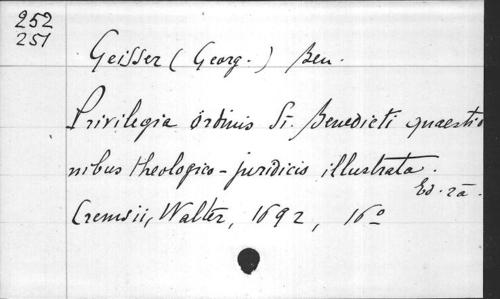 252
251
Geisser (Georg.) Ben.
Privilegia ordinis St. Benedicti quaestio
nibus theologico-juridicis illustrata.
Ed. 2a.
Cremsii, Walter, 1692, 16°